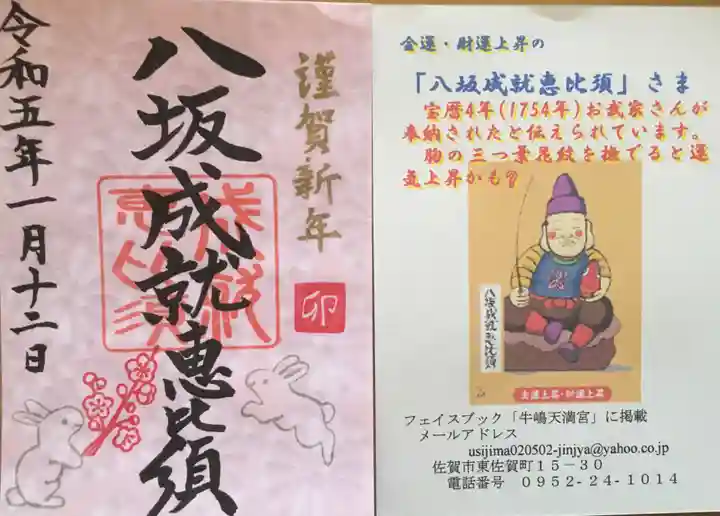 謹賀新年
卯
八坂成就恵比須
令和五年一月十二日
金運・財運上昇の
「八坂成就恵比須」さま
宝暦4年(1754年)お武家さんが
奉納されたと伝えられています。
胸の三つ葉花紋を撫でると運
気上昇かも
八坂成就恵比須
金運上昇・財運上昇
フェイスブック「牛嶋天満宮」に掲載
メールアドレス
usijima020502-jinjya@yahoo.co.jp
佐賀市東佐賀町15−30
電話番号 0952-24-1014